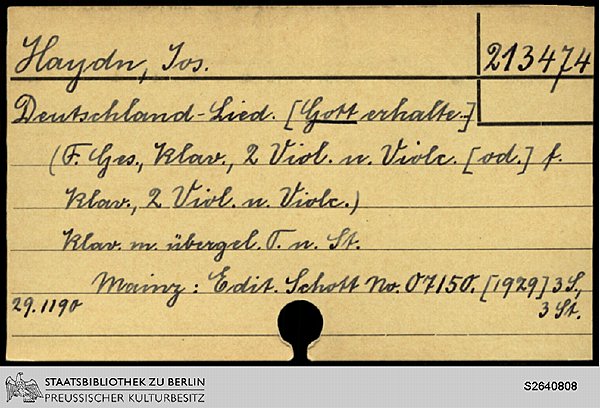 Haydn, Jos.
213474
Deutschland-Lied. [Gott erhalte..]
(F. Ges., Klav., 2 Viol. u. Violc. [od.] f.
Klav., 2 Viol. u. Violc.)
Klav. m. übergel. T. u. St.
Mainz: Edit. Schott No. 07150. [1929] 3 S.,
29.1190
3 St.
STAATSBIBLIOTHEK ZU BERLIN
PREUSSISCHER KULTURBESITZ
S2640808